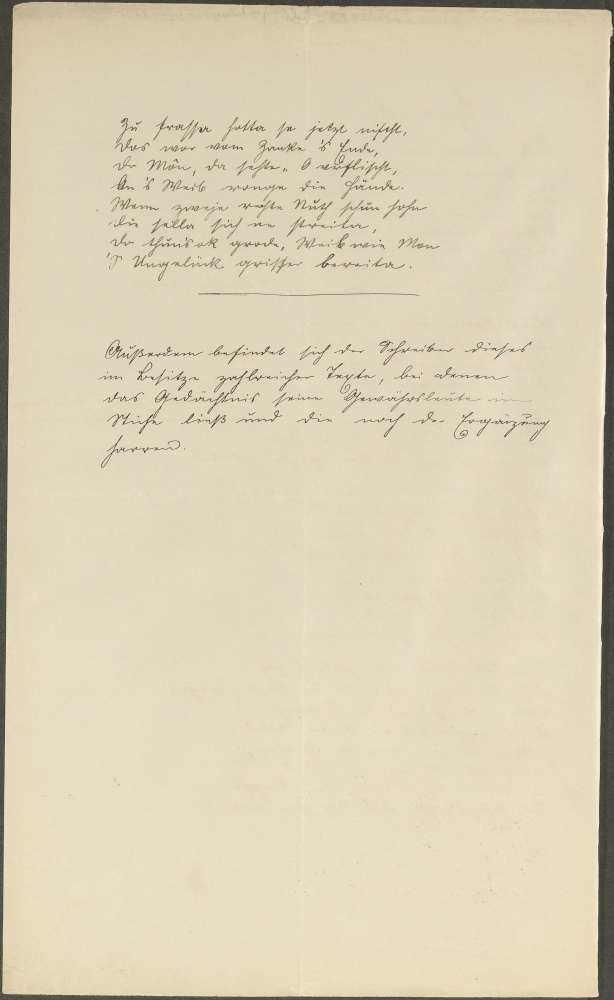 Zu frassa hotta se jetzt nischt,
Das wor vom Zanke 's Ende,
Dr Mon, da sohte „O verflischt,
On 's Weib ronge die Hände.
Wenn zweje rachte Nuth schun hohn
Die sella sich ne streita,
Do thun's ok grode, Weib wie Mon
'S Ungelück grisser bereita.
Außerdem befindet sich der Schreiber dieses
im Besitze zahlreicher Texte, bei denen
das Gedächtnis seine Gewährsleute im
Stiche ließ und die noch der Ergänzung
harren.